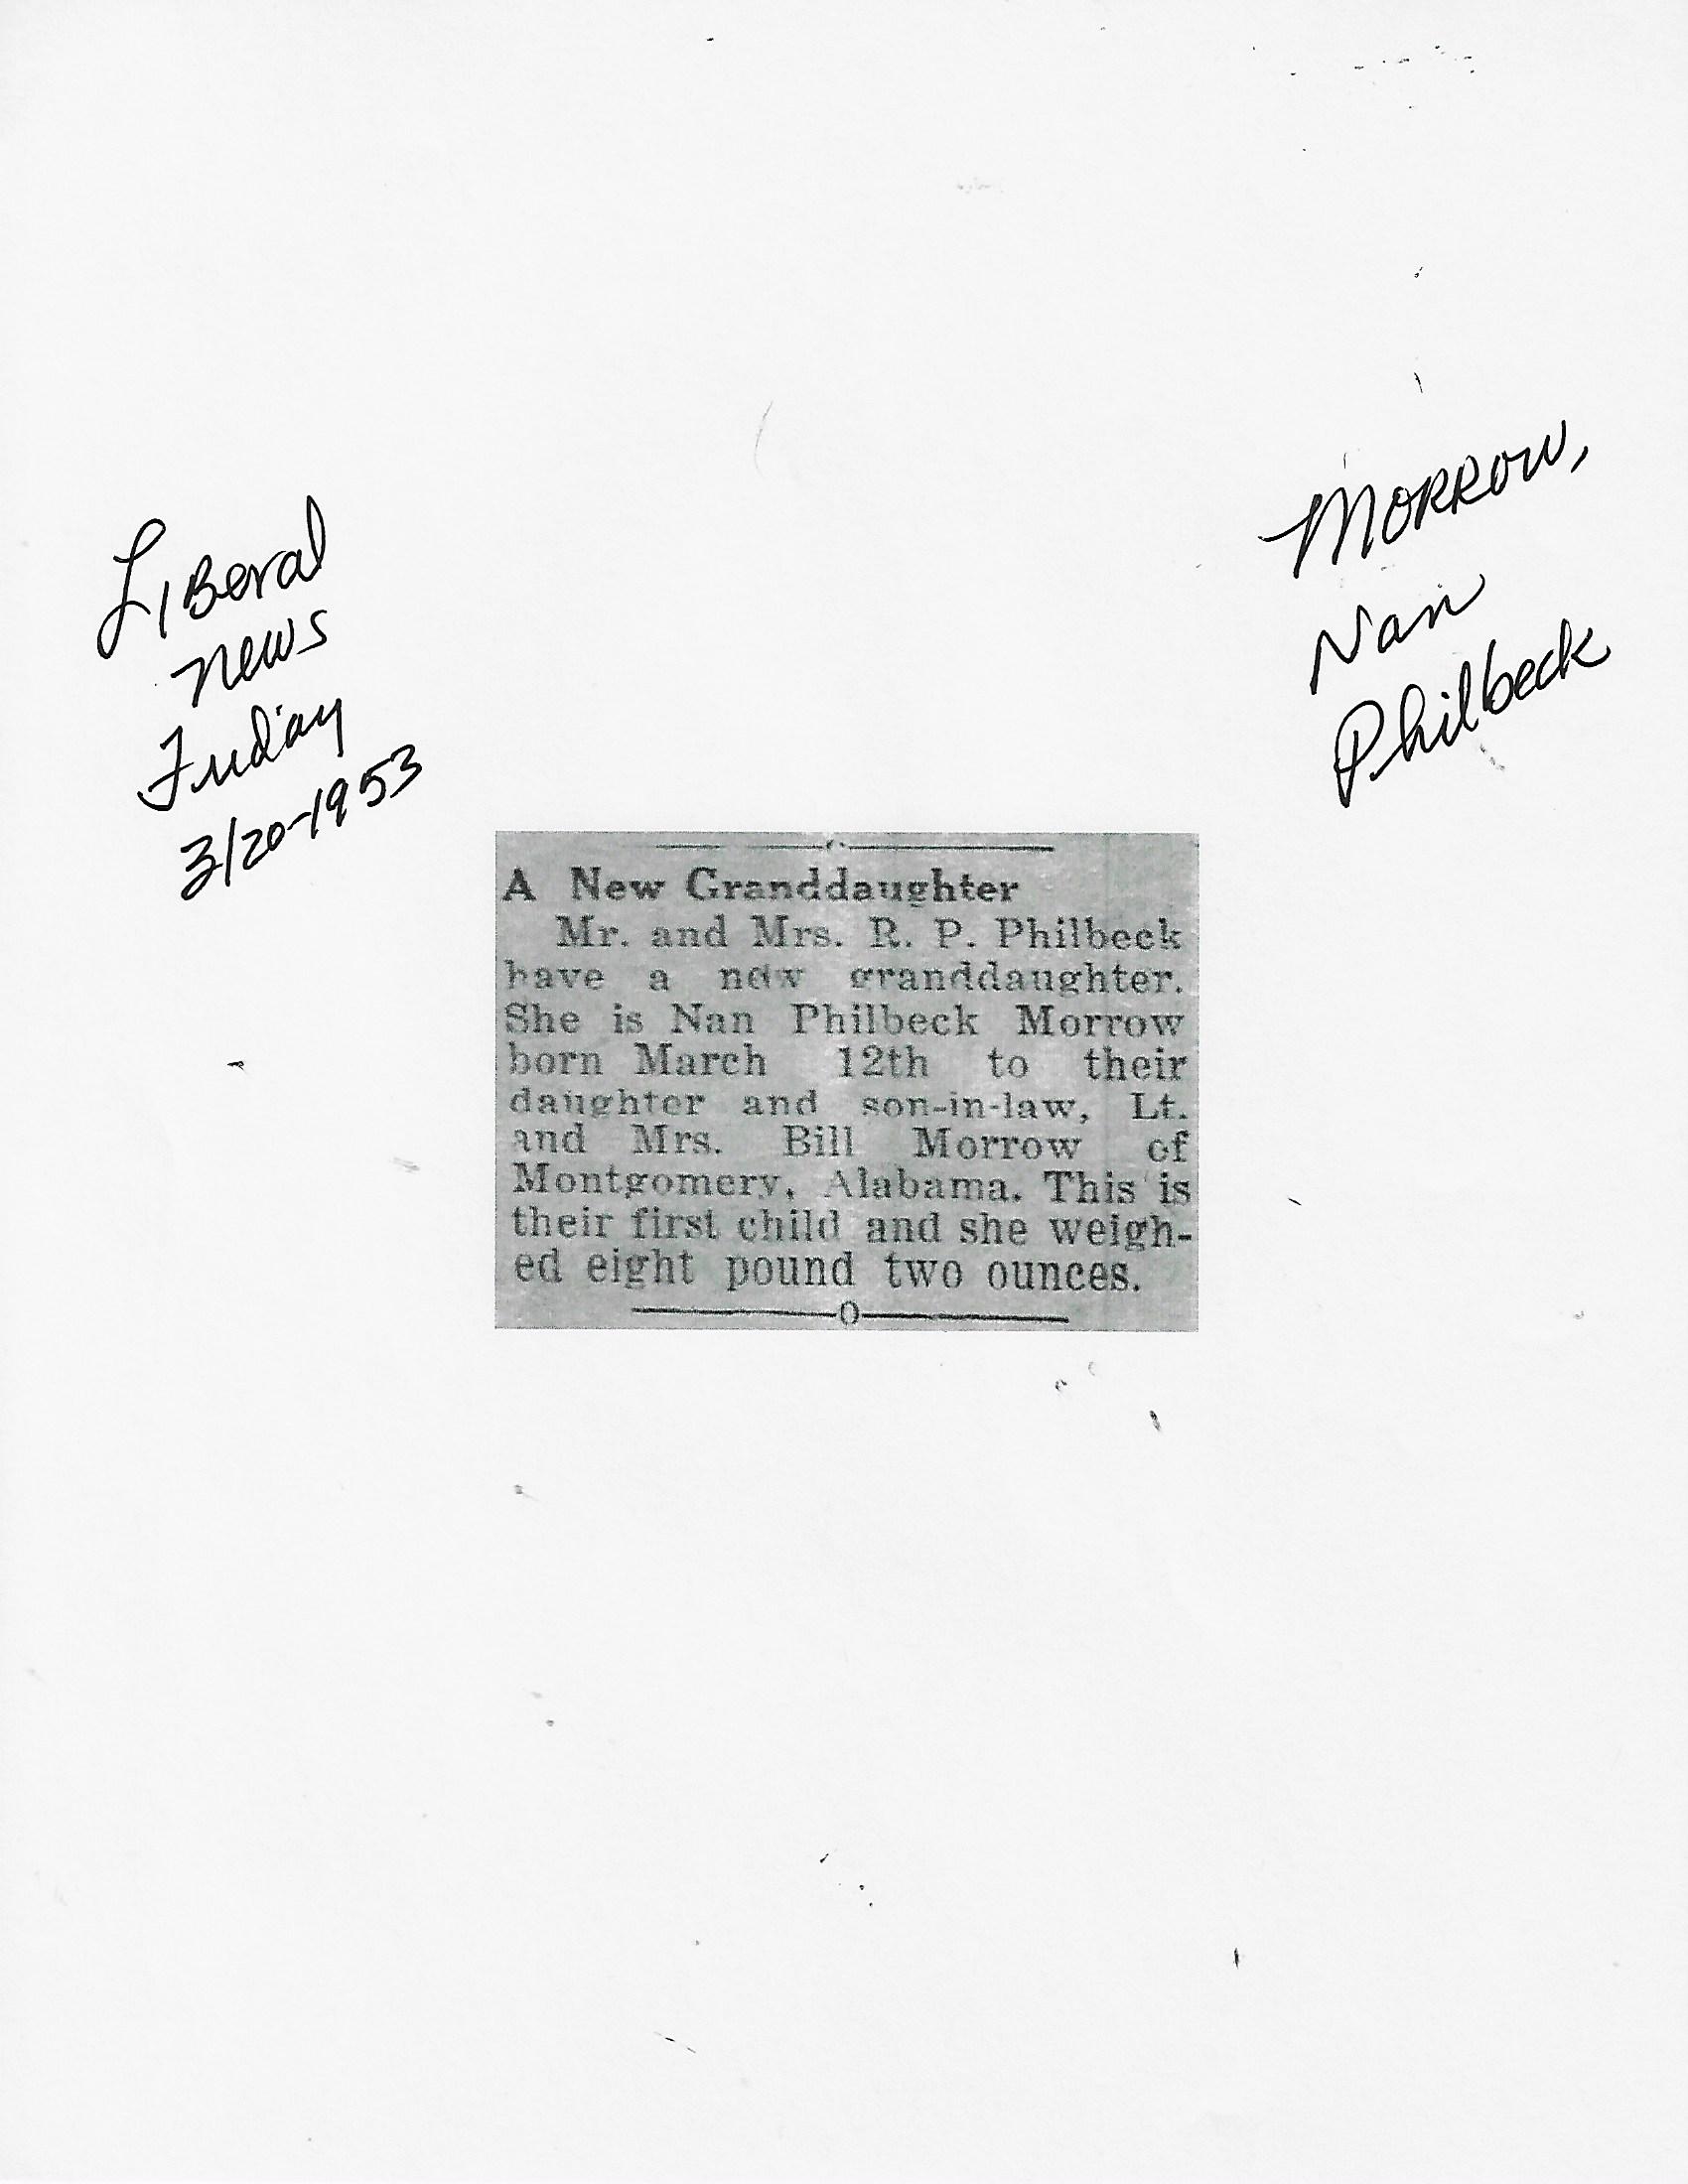 Liberal
News
Friday
3/20-1953
Morrow,
Nan
Philbeck
A New Granddaughter
Mr. and Mrs. R. P. Philbeck
have a new granddaughter.
She is Nan Philbeck Morrow
born March 12th to their
daughter and son-in-law, Lt.
and Mrs. Bill Morrow of
Montgomery, Alabama. This is
their first child and she weigh-
ed eight pound two ounces.